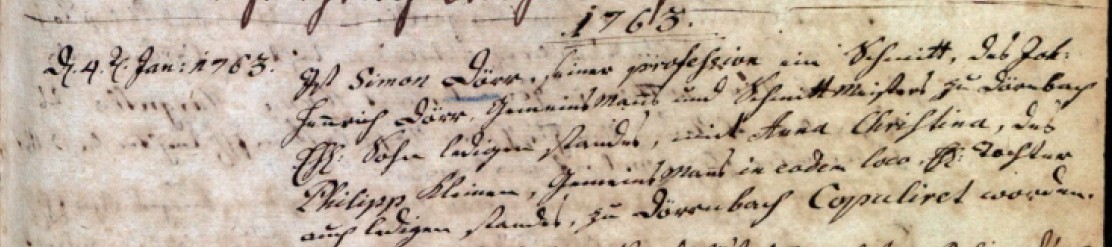 1763.
D. 4. t. Jan: 1763. Ist Simon Dörr, seiner profession ein Schmitt, des Joh:
Henrich Dörr, Gemeins Mans und Schmitt Meisters zu Dörrnbach
Ehl: Sohn ledigen standes, mit Anna Christina, des
Philipp Kleinen, Gemeins Mans in eodem loco, Ehl: Tochter
auch ledigen standes, zu Dörrnbach Copuliret worden.